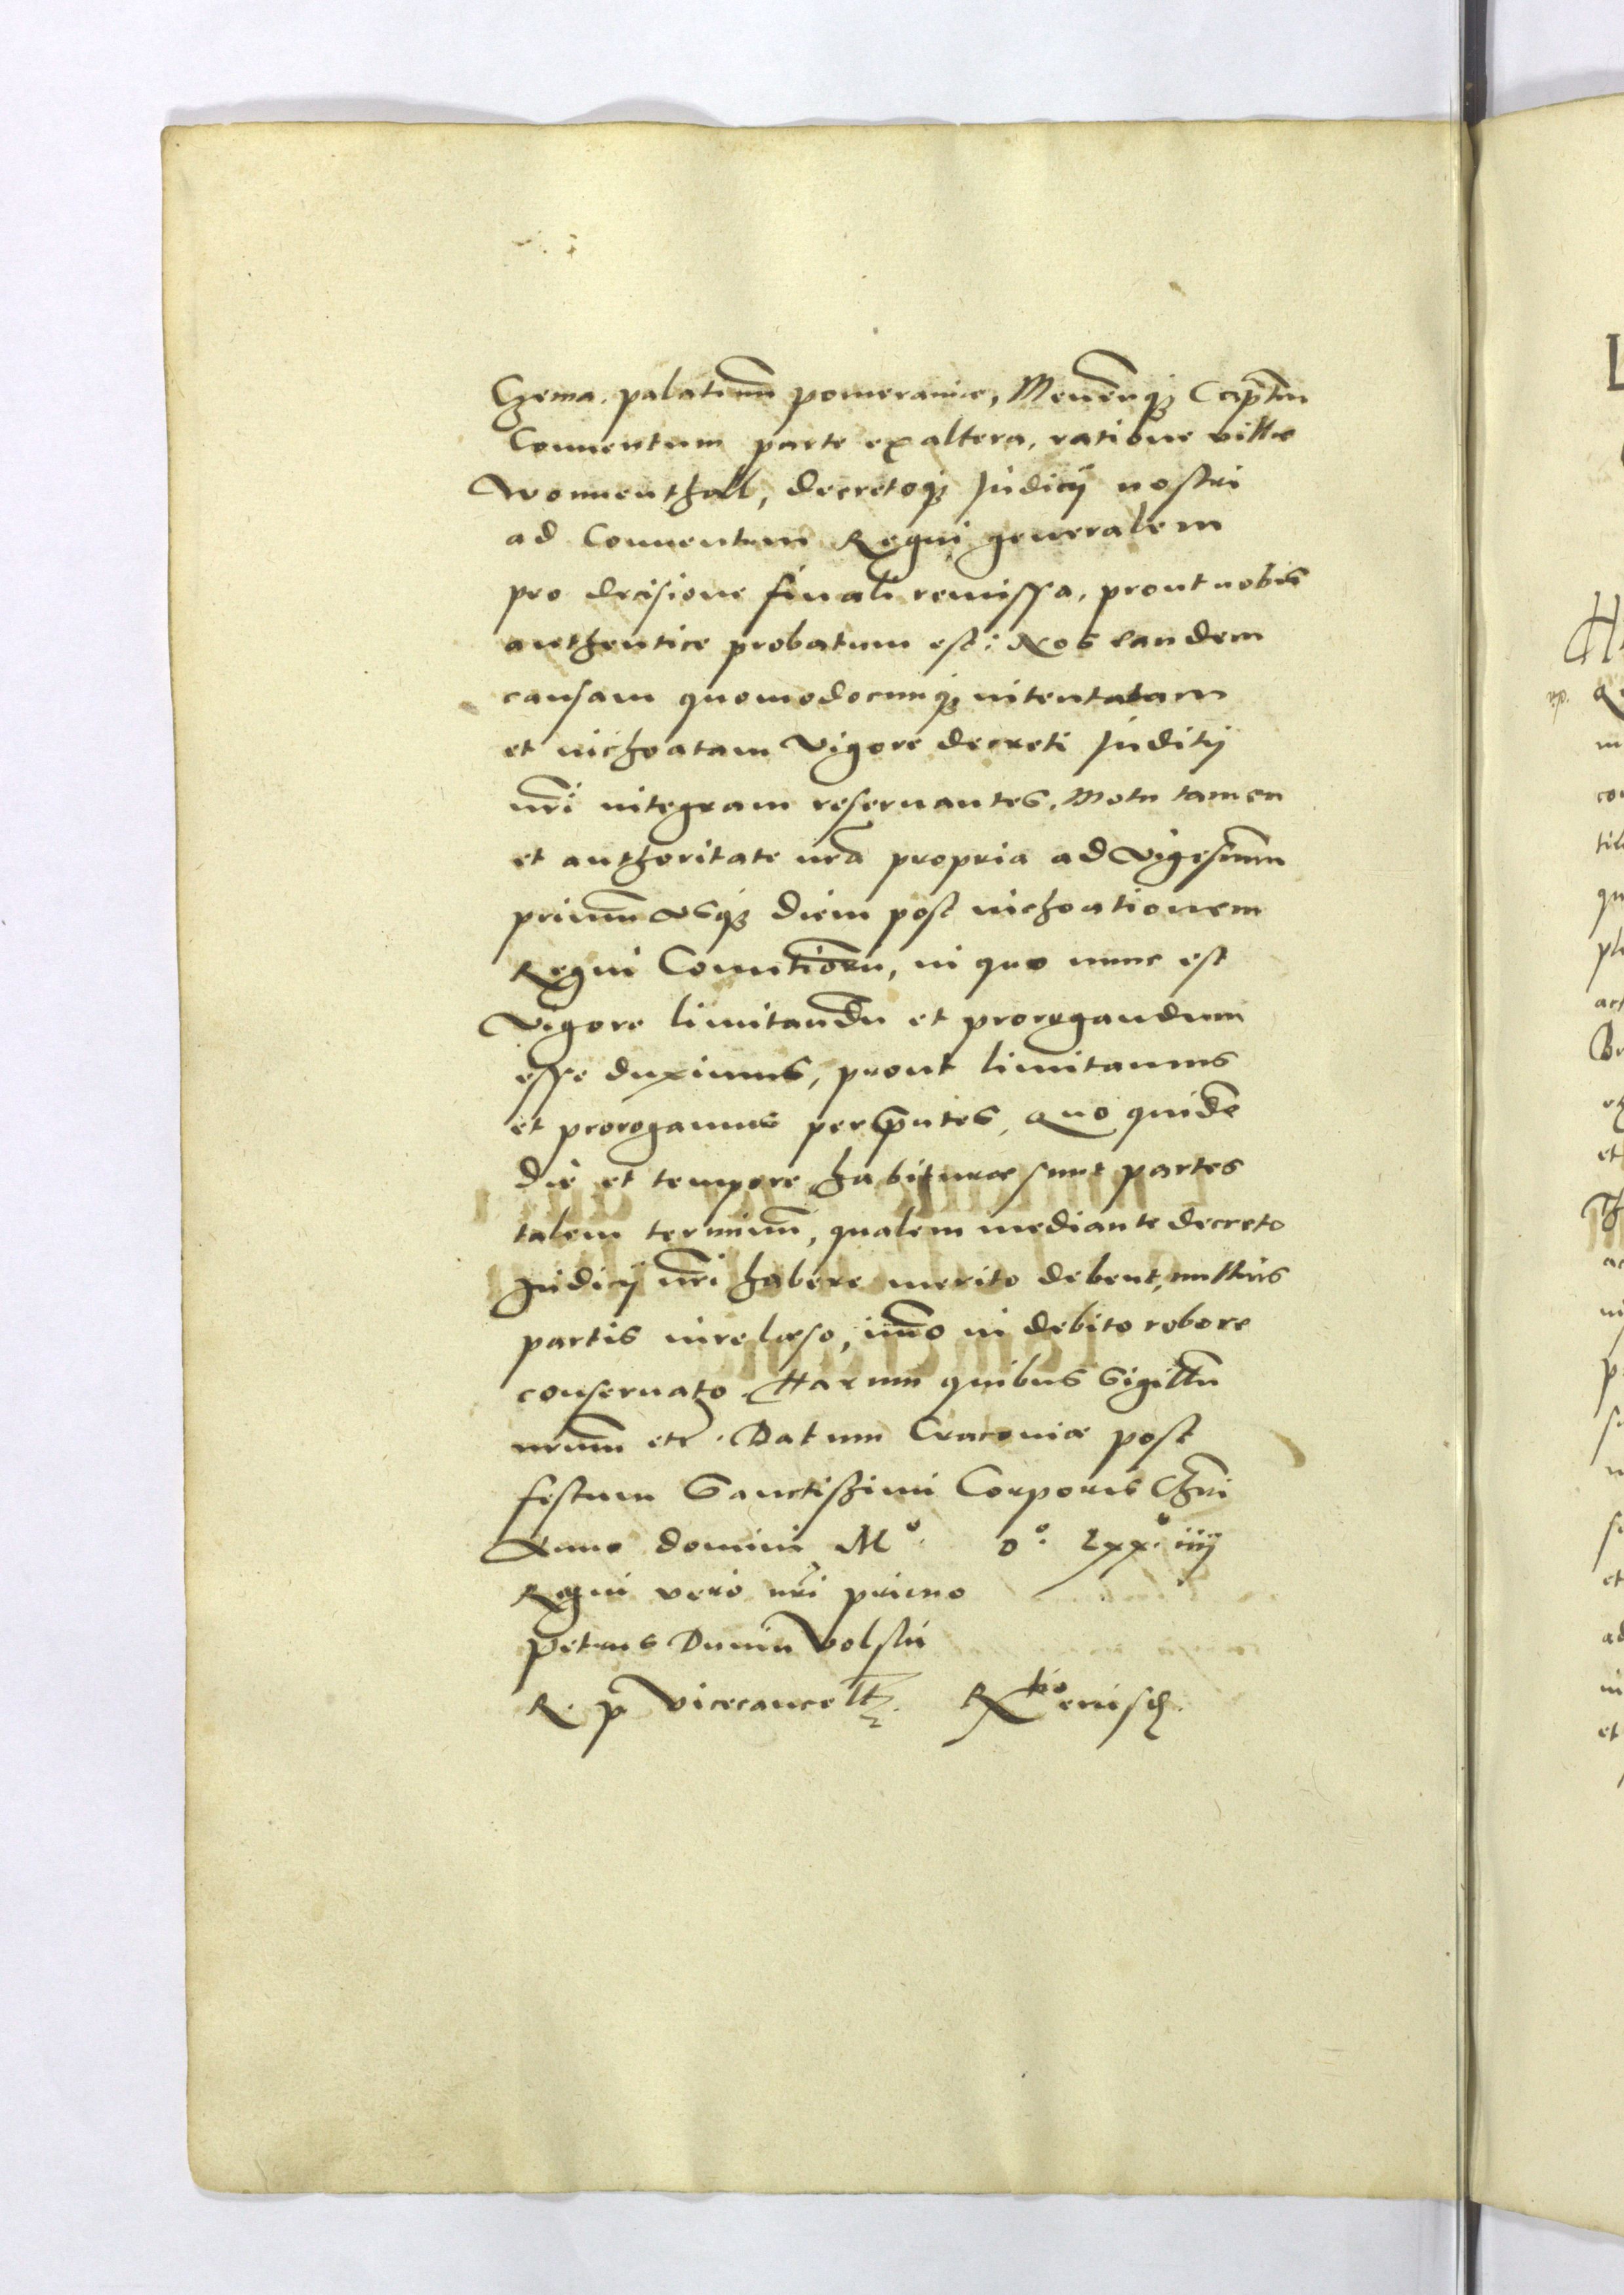 Czema palatinũ pomeraniæ, Meuẽnq₃ Cap̃tm
Conuentum parte ex altera, ratione villæ
Wonnenthall, decretoq₃ Judicij nostri
ad Conuentum Regni generalem
pro decisione finali remissa, prout nobis
authentice probatum est: Nos eandem
causam quomodocunq₃ intentatam
et inchoatam vigore decreti Juditij
nr̃i integram reseruantes, Motu tamen
et authoritate nr̃a propria ad vigesimũ
primũ usq₃ diem post inchoationem
Regni Comitiorũ, in quo nunc est
vigore limitandũ et prorogandum
esse duximus, prout limitamus
et prorogamus per p̃ntes, Quo quidẽ
die et tempore habituræ sunt partes
talem terminũ, qualem mediante decreto
Judicij nr̃i habere merito debent, nullius
partis iure læso, imõ in debito robore
conseruato. Harum quibus Sigillũ
nrũm etc. Datum Cracouiæ post
festum Sanctissimi Corporis Chr̃i
Anno domini M° D° Lxx° iiij
Regni vero nr̃i primo
Petrus Dunin Volski
R. P. Vicecancell.